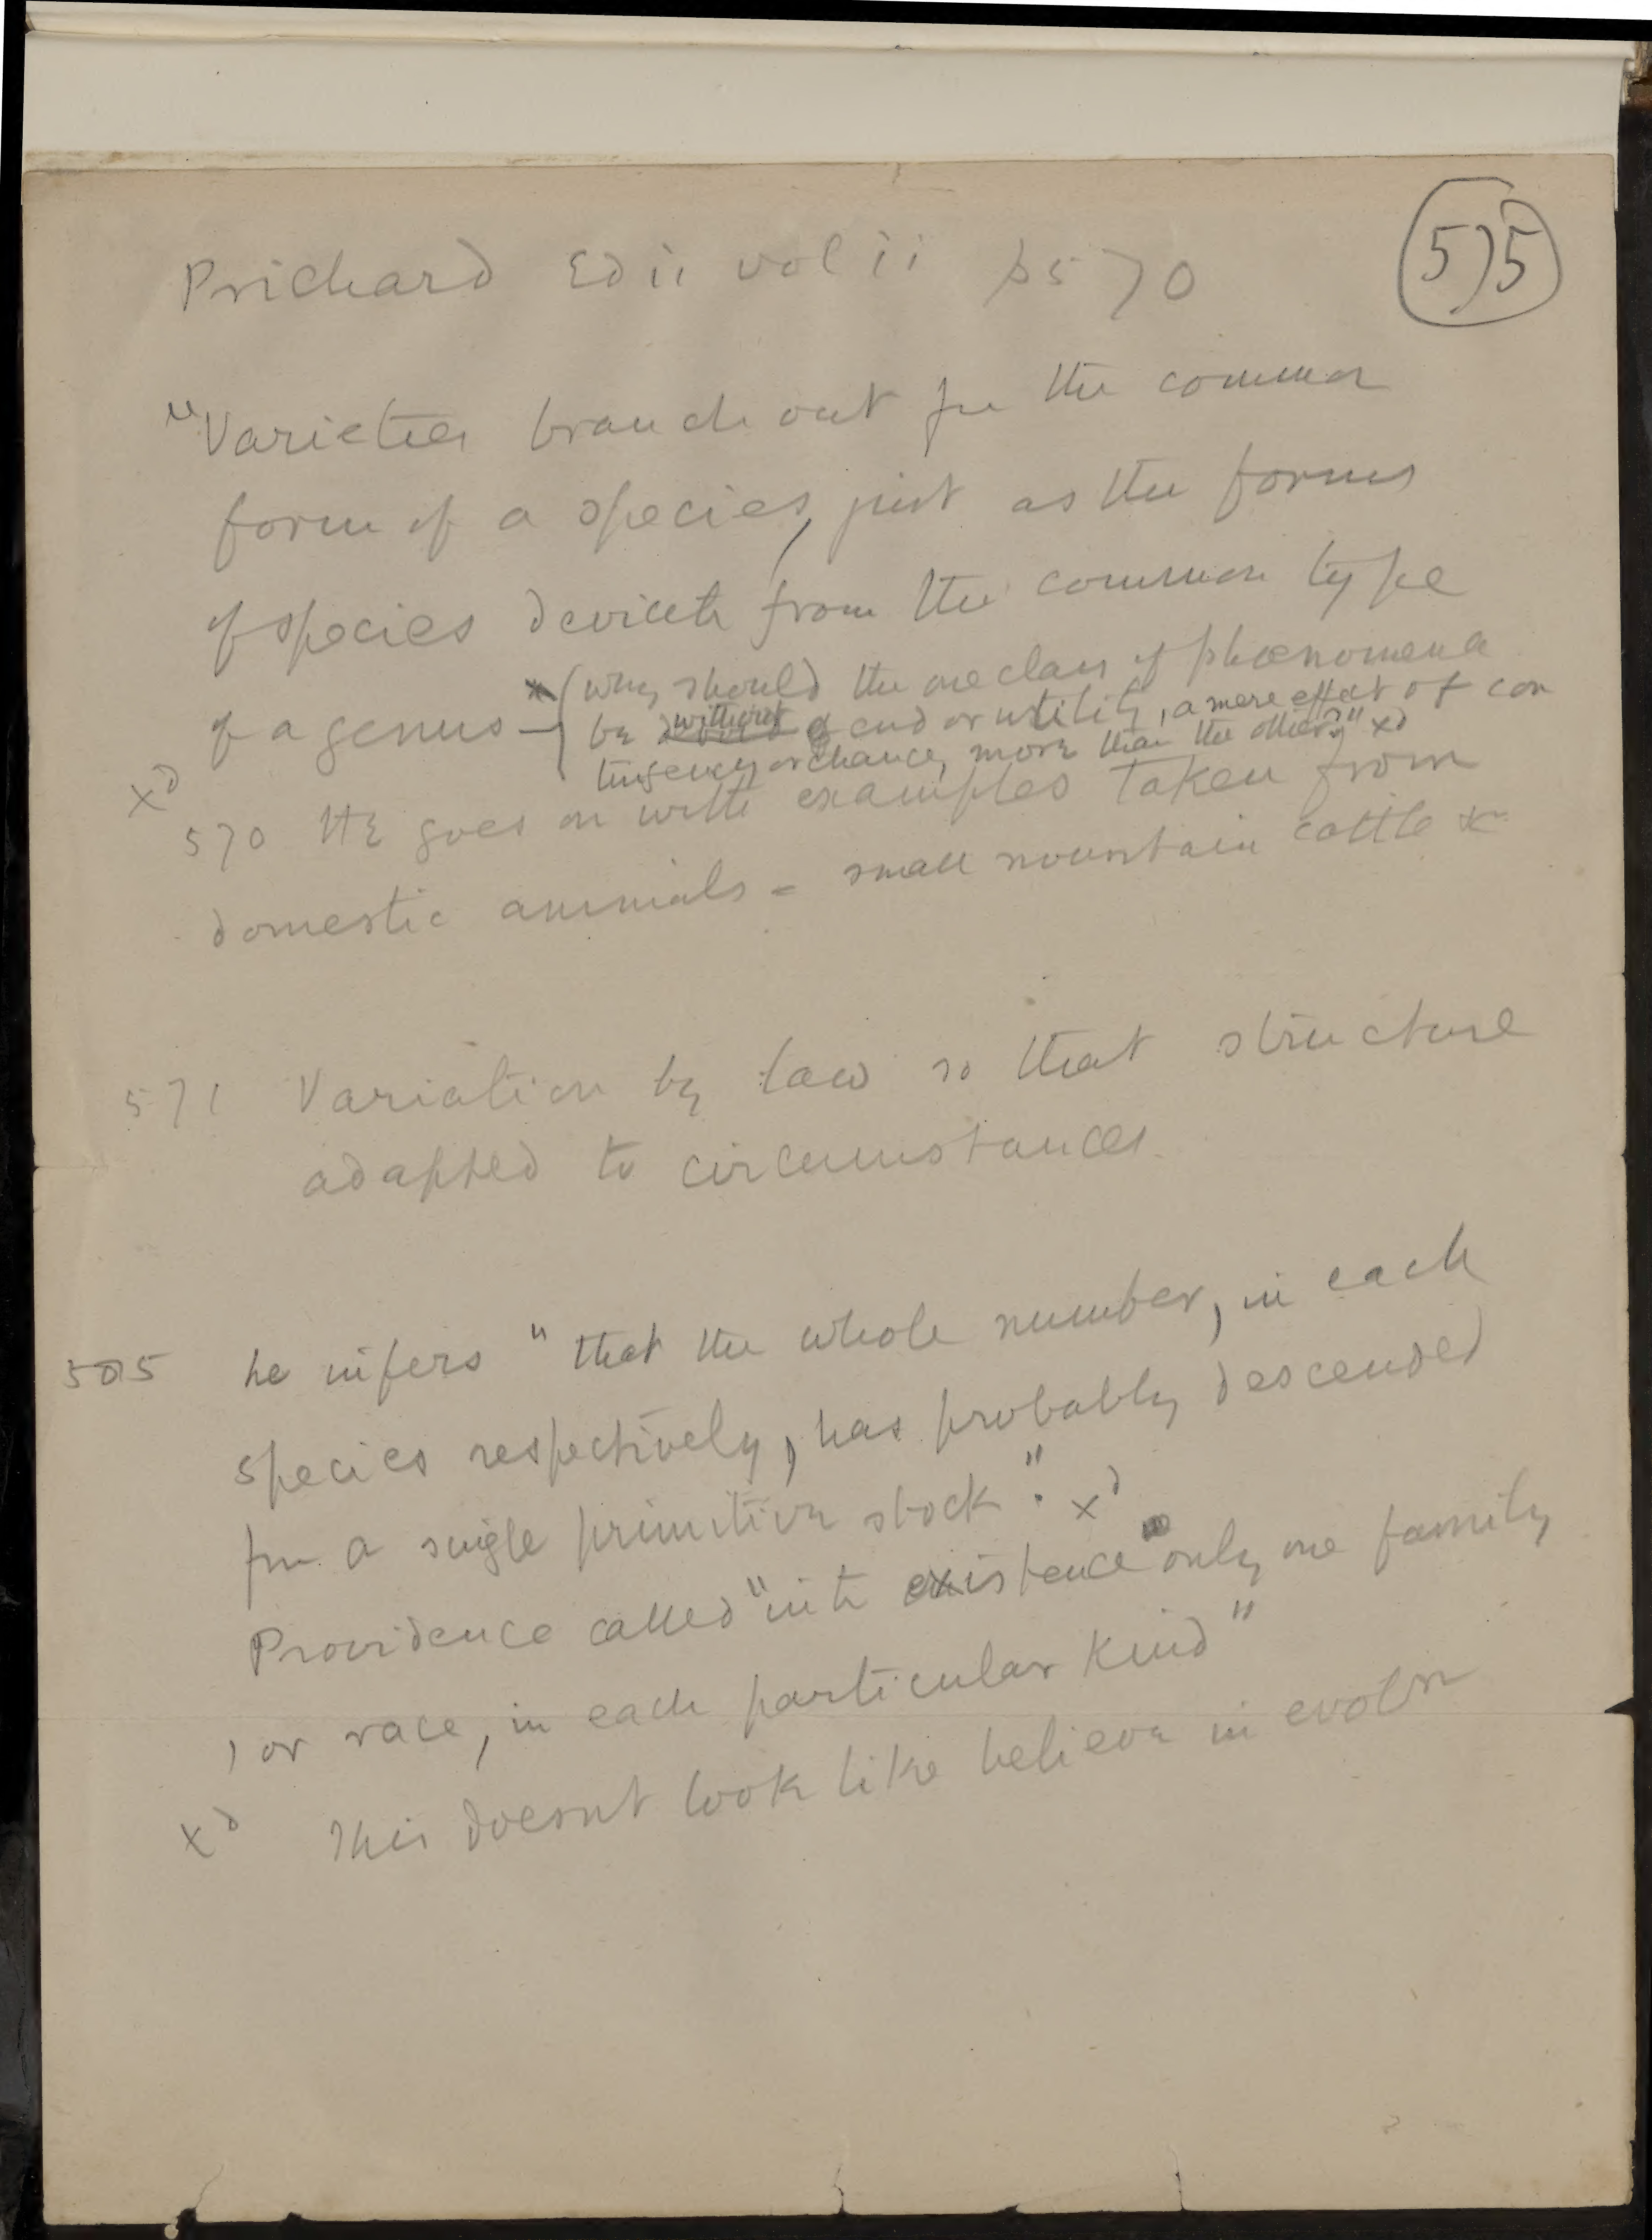 575
Prichard Ed ii vol ii p570
"Varieties branch out fr the common
form of a species, just as the forms
of species deviate from the common type
of a genus — (why should the one class of phænomena
be without end or utility, a mere effect of con
tingency or chance, more than the other?" xᵈ
xᵈ
570 He goes on with examples taken from
domestic animals = small mountain cattle &
571 Variation by law so that structure
adapted to circumstances.
595 he infers "that the whole number, in each
species respectively, has probably descended
from a single primitive stock". xᵈ
Providence called "into existence only one family
, or race, in each particular kind"
xᵈ This doesnt look like believe in evolⁿ